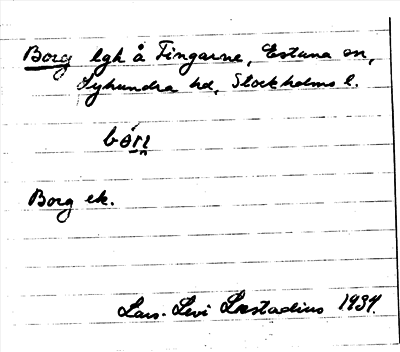 Borg lgh å Fingarne, Estuna sn,
Lyhundra hd, Stockholms l.
Borg ek.
Lars-Levi Læstadius 1934.